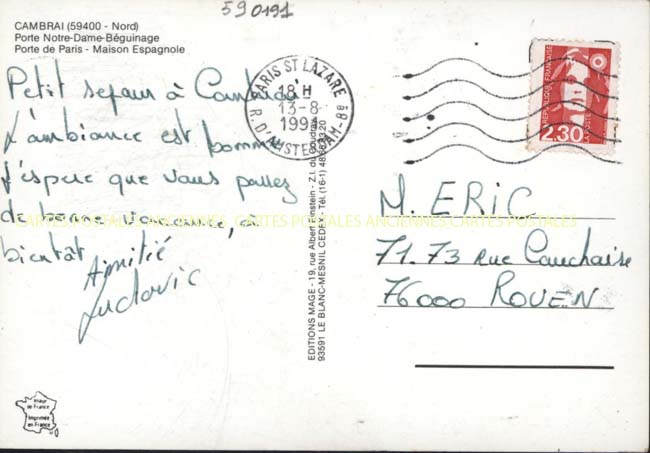 59 0191
CAMBRAI (59400 - Nord)
Porte Notre-Dame-Béguinage
Porte de Paris - Maison Espagnole
Petit sejour à Cambrai
L'ambiance est bonne
J'espere que vous passez
de bonne vacance, à
bientôt
Amitié
Ludovic
PARIS ST LAZARE
18 H
13-8
R. D'AMSTERDAM-8e
REPUBLIQUE FRANÇAISE
2.30
LA POSTE
M. ERIC
71.73 rue Cauchoise
76000 ROUEN
EDITIONS MAGE - 19, rue Albert Einstein - Z.I. du Coudray
93591 LE BLANC-MESNIL CEDEX - Tél. (16-1)
CARTES POSTALES ANCIENNES CARTES POSTALES ANCIENNES CARTES POSTALES
Image
de France
Imprimée
en France